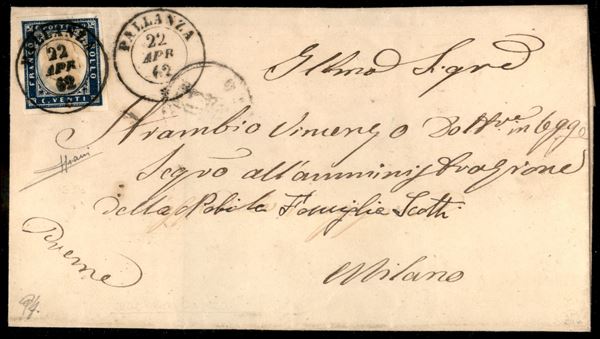 FRANCO POSTE BOLLO
C. VENTI
22
APR
62
PALLANZA
22
APR
62
Illmo Sigre
Strambio Vimengo Dottre in Legge
Segro all'amministrazione
della Nobile Famiglie Scotti
Preme
Milano